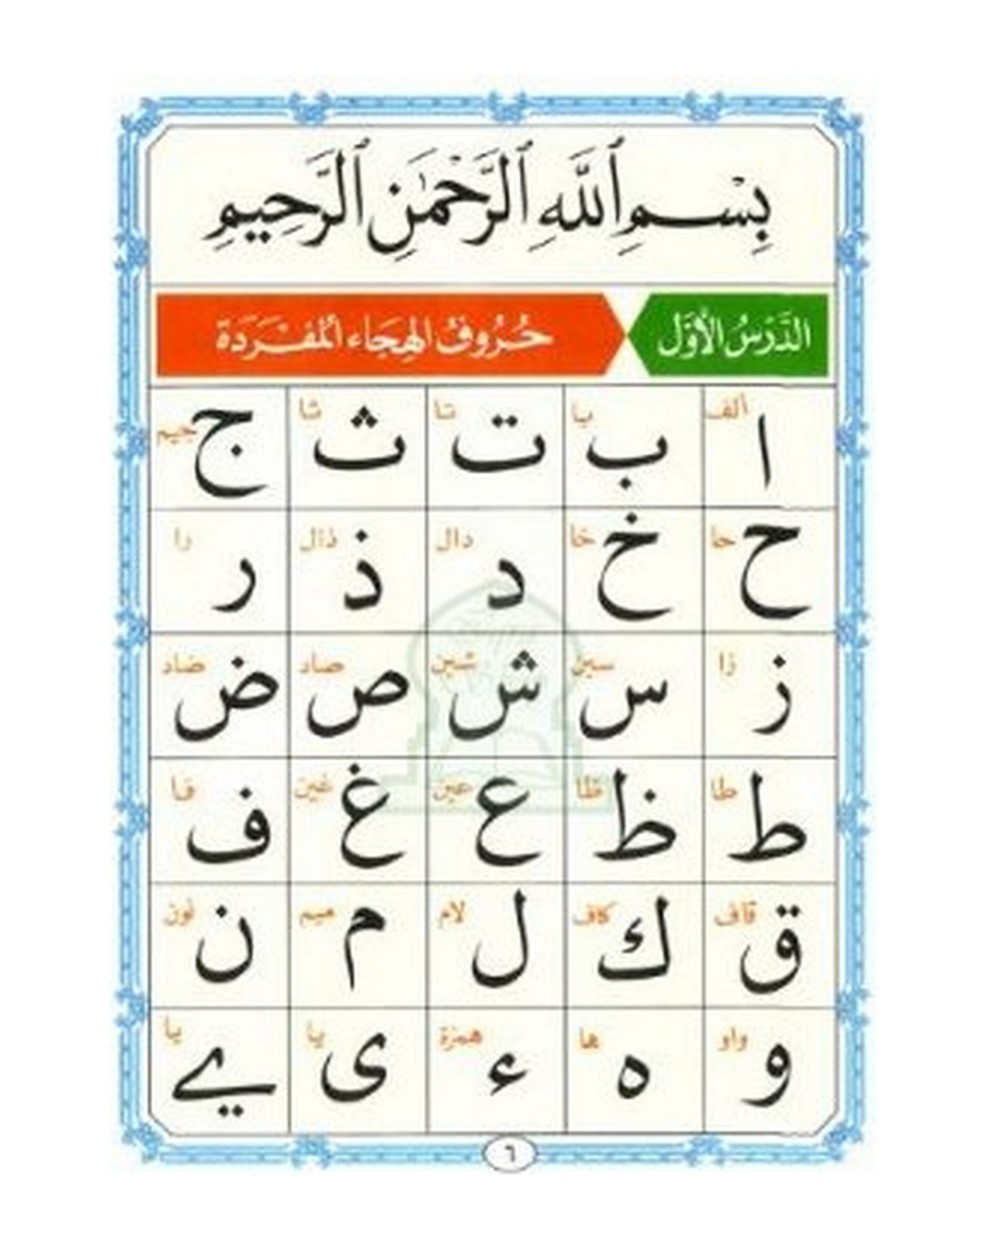 بِسْمِ ٱللَّهِ ٱلرَّحْمَٰنِ ٱلرَّحِيمِ
الدَّرْسُ الْأَوَّلُ حُرُوفُ الْهِجَاءِ الْمُفْرَدَةِ
ألف ا با ب تا ت ثا ث جيم ج
حا ح خا خ دال د ذال ذ را ر
زا ز سين س شين ش صاد ص ضاد ض
طا ط ظا ظ عين ع غين غ فا ف
قاف ق كاف ك لام ل ميم م نون ن
واو و ها ه همزة ء يا ى يا ے
٦